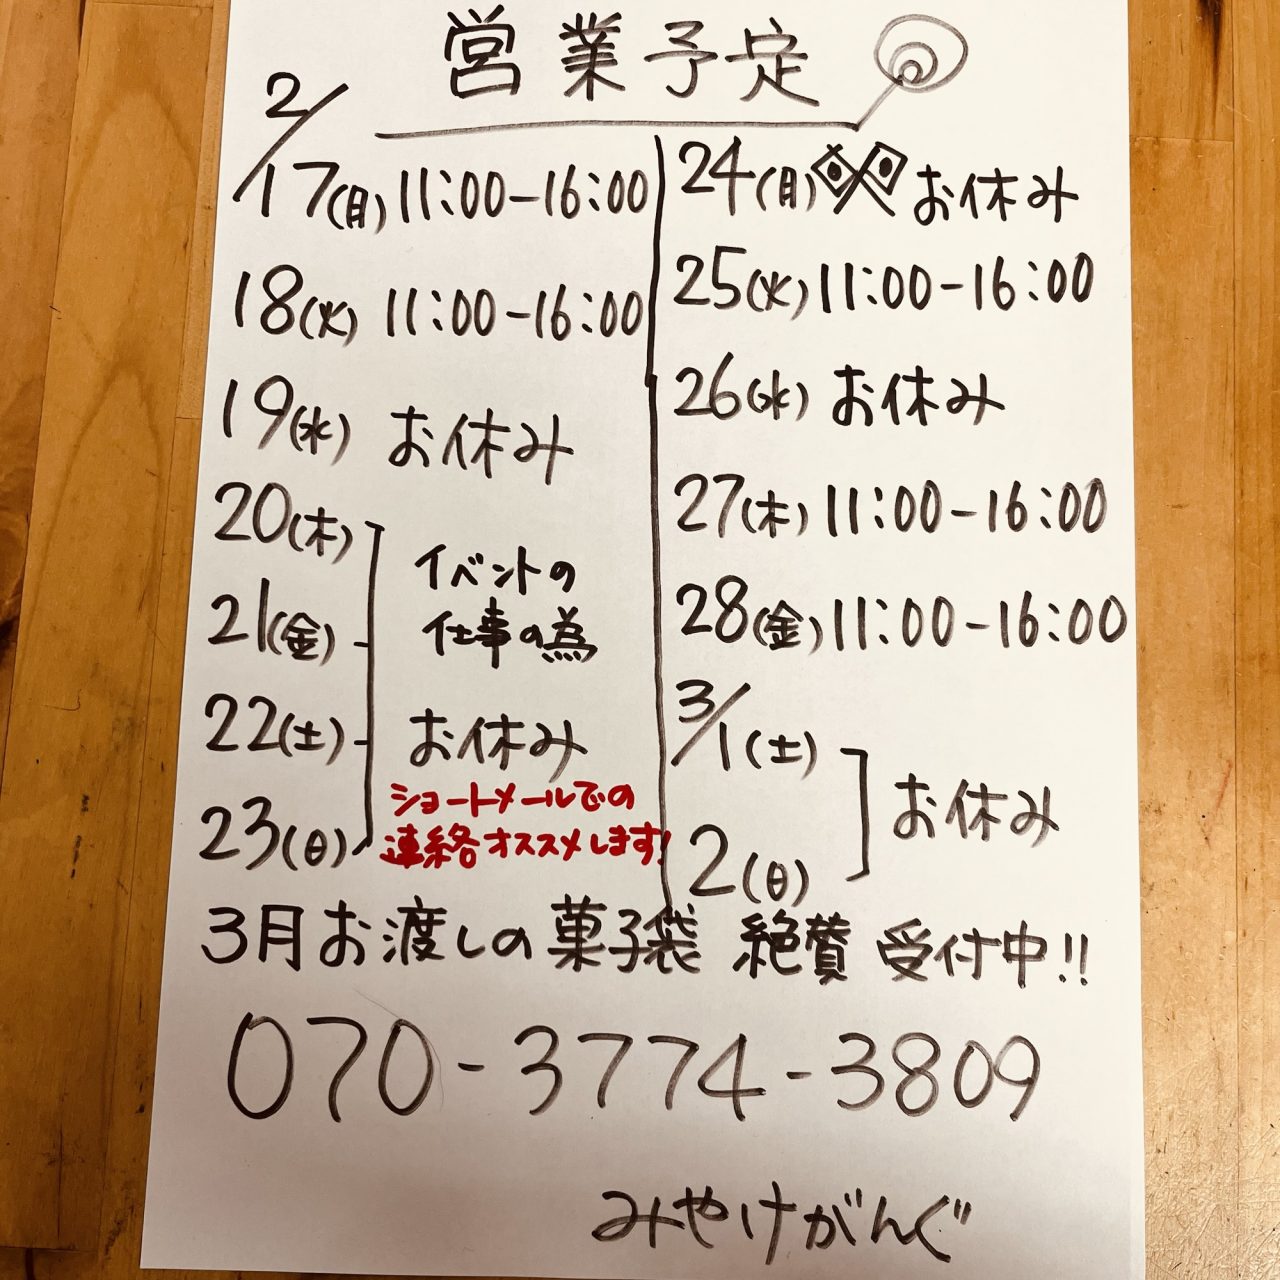 営業予定
2/17(月) 11:00-16:00
18(火) 11:00-16:00
19(水) お休み
20(木)
21(金)
22(土)
23(日)
イベントの
仕事の為
お休み
ショートメールでの
連絡オススメします!
24(月) お休み
25(火) 11:00-16:00
26(水) お休み
27(木) 11:00-16:00
28(金) 11:00-16:00
3/1(土)
2(日)
お休み
3月お渡しの菓子袋 絶賛 受付中!!
070-3774-3809
みやけがんぐ